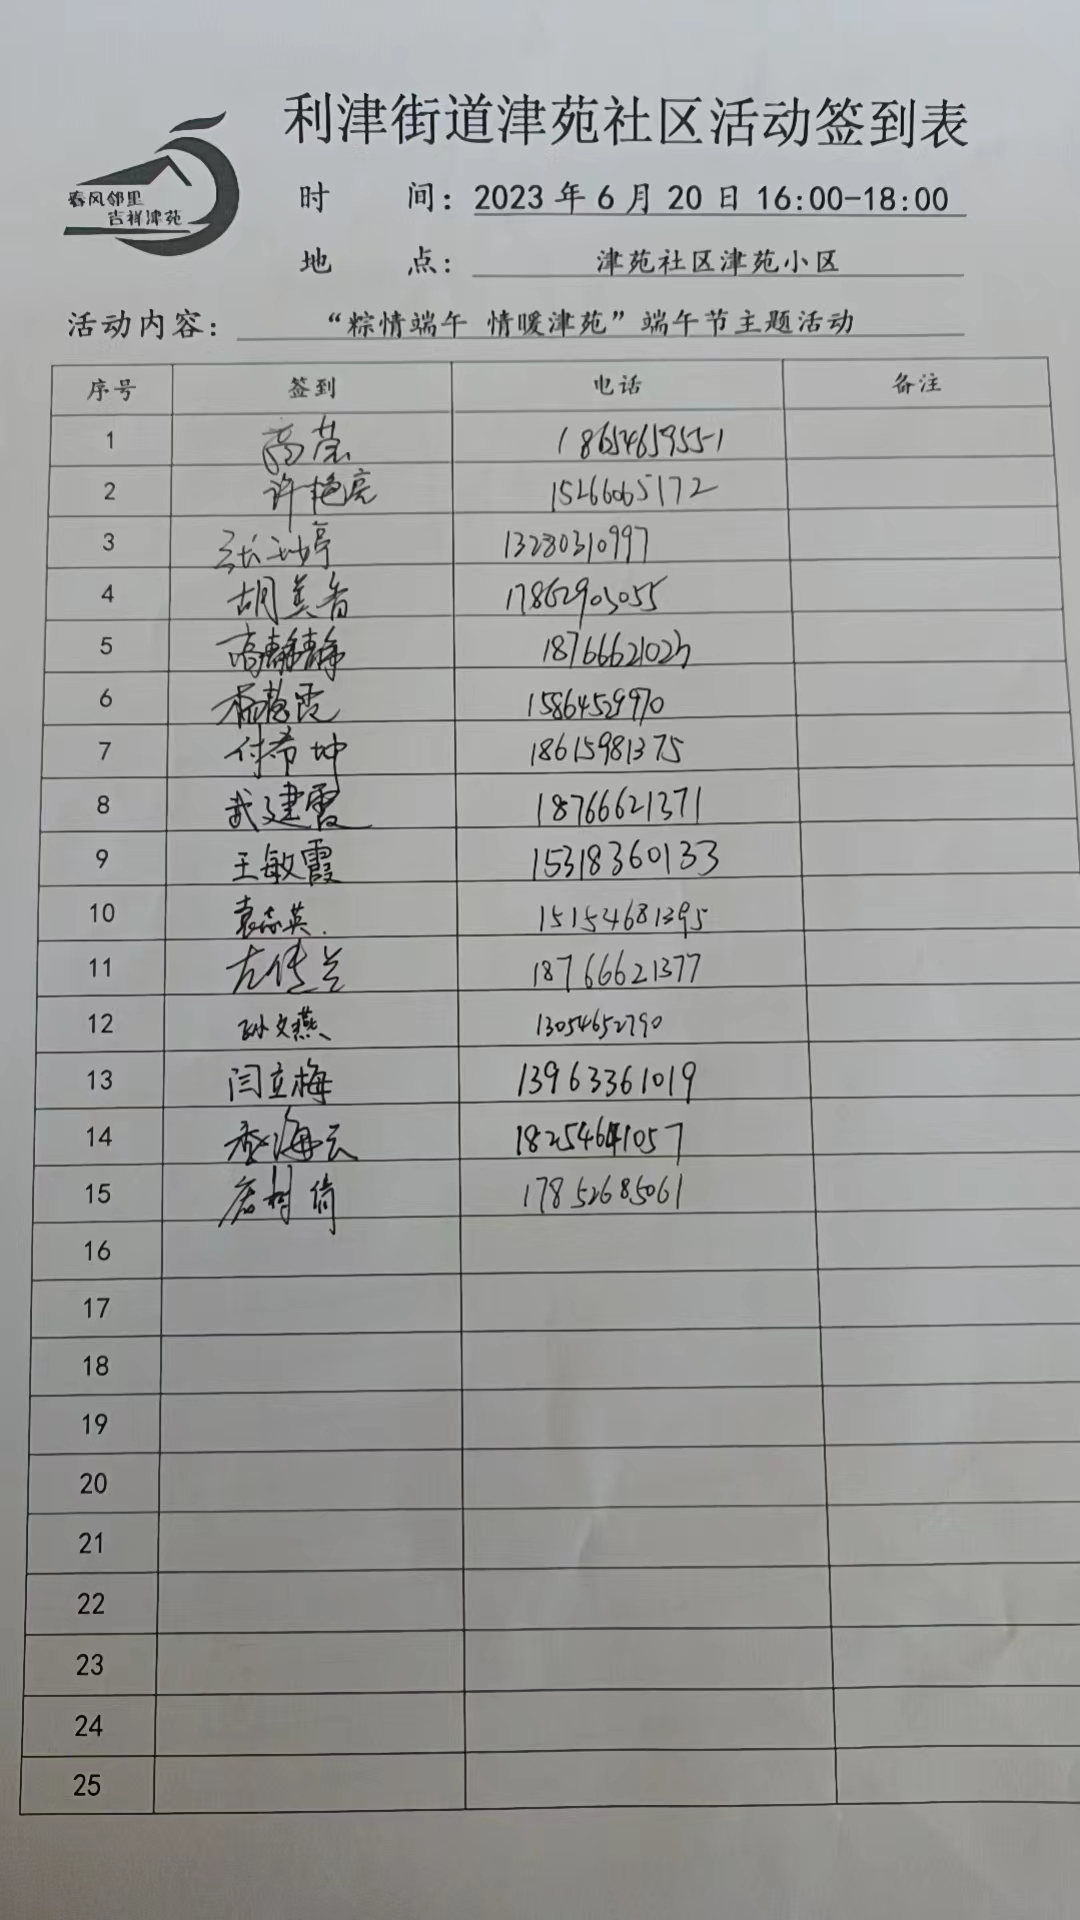 利津街道津苑社区活动签到表
春风邻里
吉祥津苑
时 间：2023 年 6 月 20 日 16:00-18:00
地 点：津苑社区津苑小区
活动内容：“粽情端午 情暖津苑”端午节主题活动
序号 签到 电话 备注
1 高莹 18654659551
2 许艳亮 15266065172
3 13280310997
4 胡美香 17862903055
5 高静静 1876662102
6 杨慧霞 15864529970
7 付希坤 18615981375
8 武建霞 18766621371
9 王敏霞 15318360133
10 袁志英. 15154681395
11 左传兰 18766621377
12 孙文燕 13054652790
13 闫立梅 13963361019
14 海云 18254641057
15 倩 17852685061
16
17
18
19
20
21
22
23
24
25